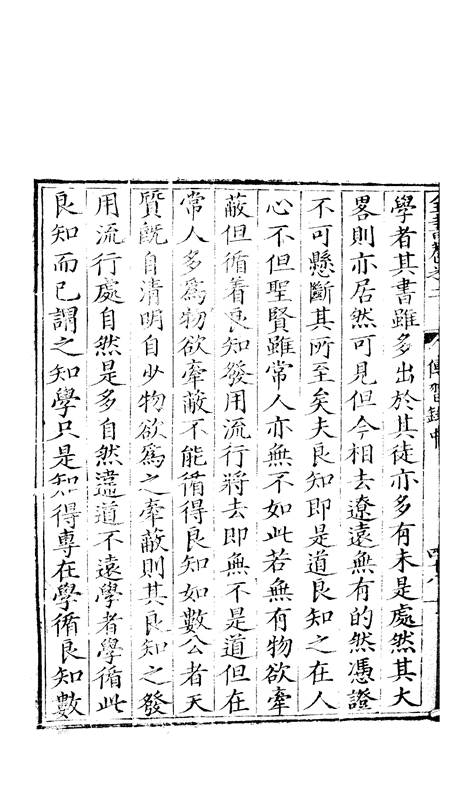 全書卷之二 傳習錄中 四十八
學者其書雖多出於其徒亦多有未是處然其大
畧則亦居然可見但今相去遼遠無有的然憑證
不可懸斷其所至矣夫良知即是道良知之在人
心不但聖賢雖常人亦無不如此若無有物欲牽
蔽但循着良知發用流行將去即無不是道但在
常人多爲物欲牽蔽不能循得良知如數公者天
質旣自清明自少物欲爲之牽蔽則其良知之發
用流行處自然是多自然違道不遠學者學循此
良知而已謂之知學只是知得專在學循良知數